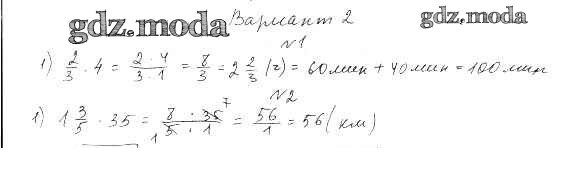 gdz.moda Вариант 2 gdz.moda
№1
1) 2/3 · 4 = 2 · 4 / 3 · 1 = 8/3 = 2 2/3 (г) = 60 мин + 40 мин = 100 мин
№2
1) 1 3/5 · 35 = 8 · 35 7 / 1 5 · 1 = 56/1 = 56 (км)